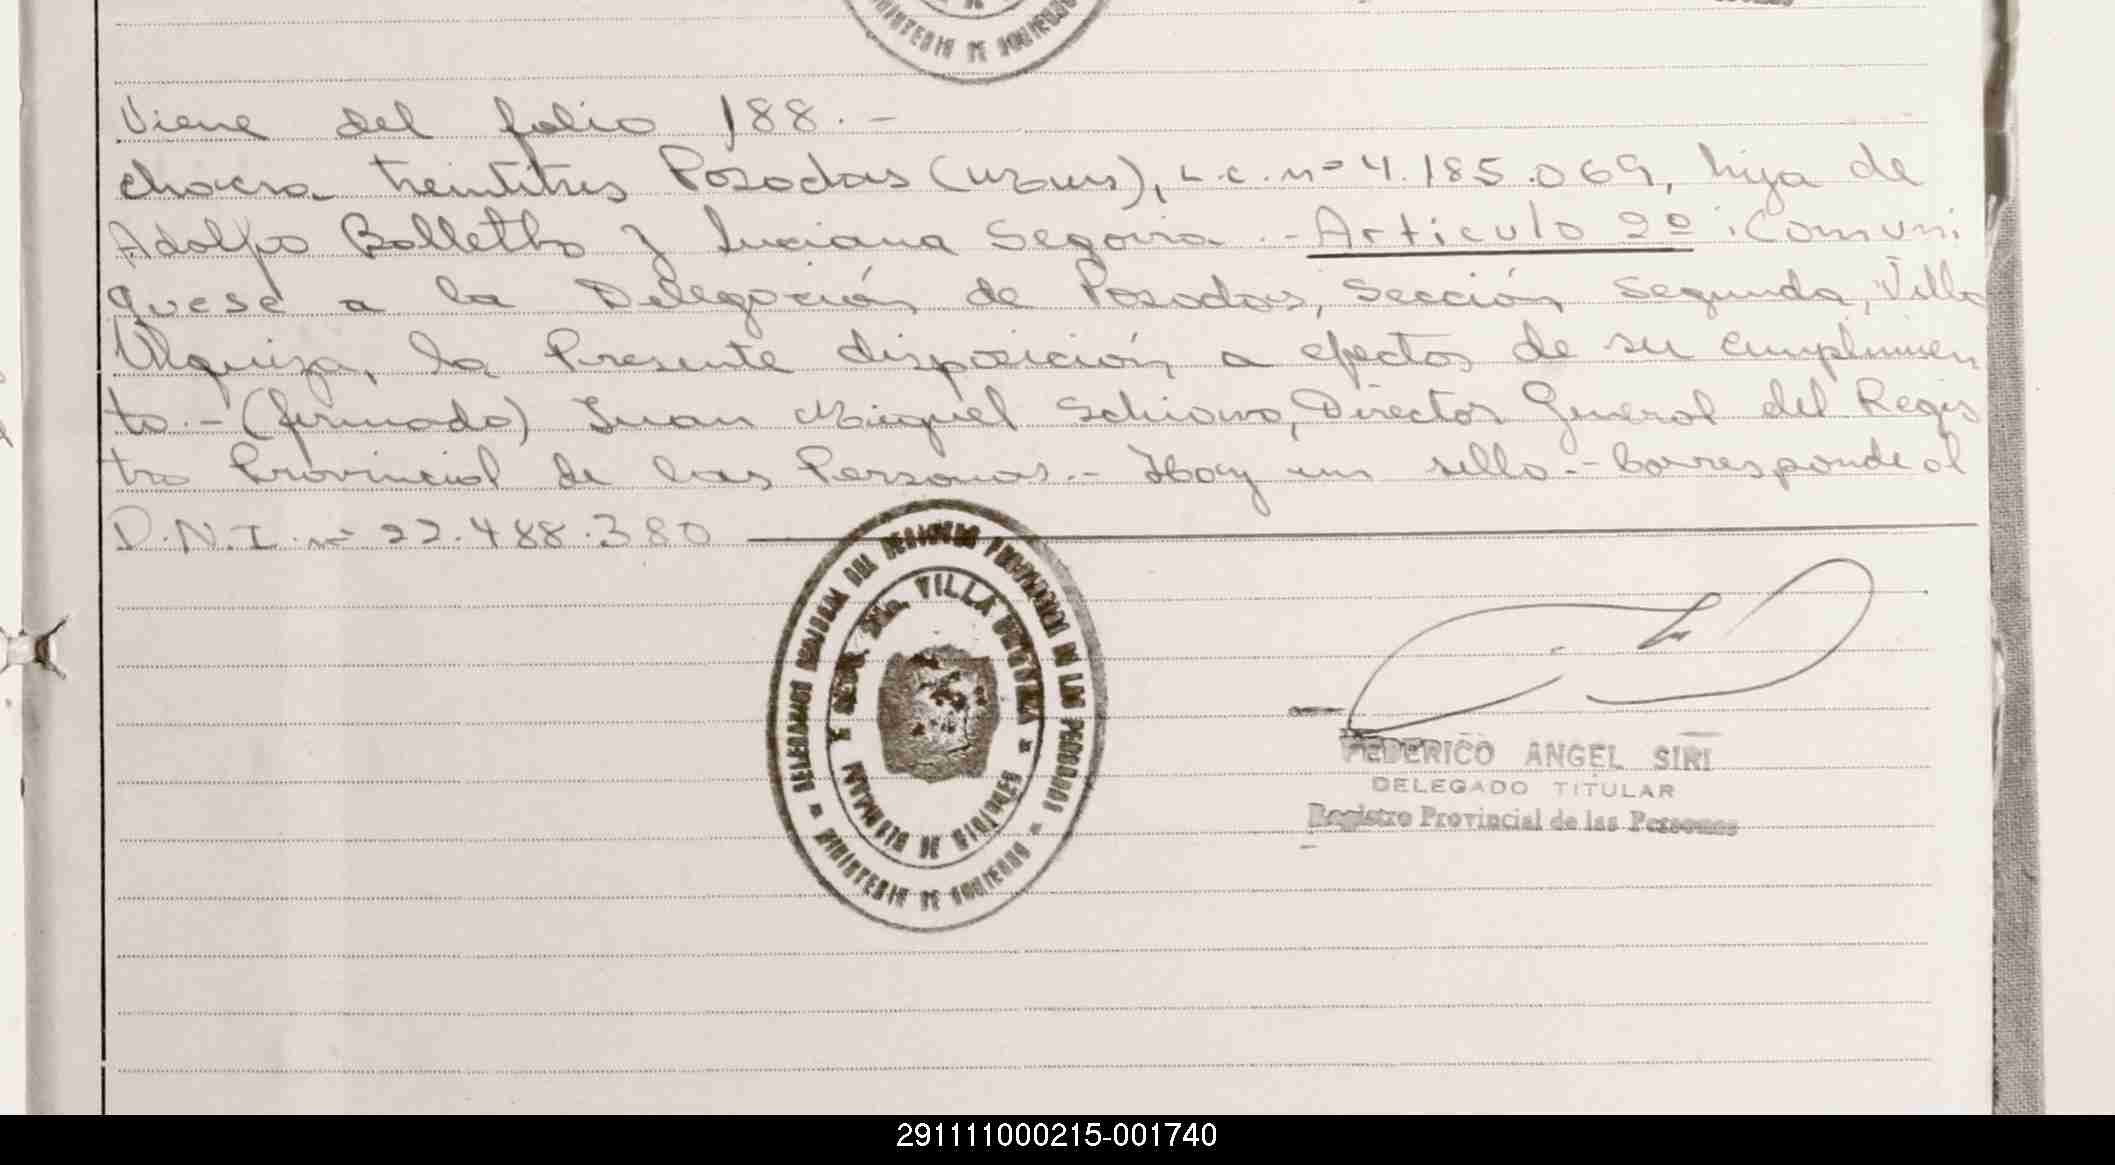 MINISTERIO DE GOBIERNO
Viene del folio 188.-
chacra treintitres Posadas (Mznes), L.C. nº 4.185.069, hija de
Adolfo Bolletto y Luciana Segovia.- Articulo 2º: Comuni
quese a la Delegación de Posadas, Sección Segunda, Villa
Urquiza, la Presente disposición a efectos de su cumplimien
to.- (firmado) Juan Miguel Schiavo, Director General del Regis
tro Provincial de las Personas.- Hay un sello.- Corresponde al
D.N.I. nº 22.488.380
REGISTRO PROVINCIAL DE LAS PERSONAS
VILLA URQUIZA
MINISTERIO DE GOBIERNO
FEDERICO ANGEL SIRI
DELEGADO TITULAR
Registro Provincial de las Personas
291111000215-001740